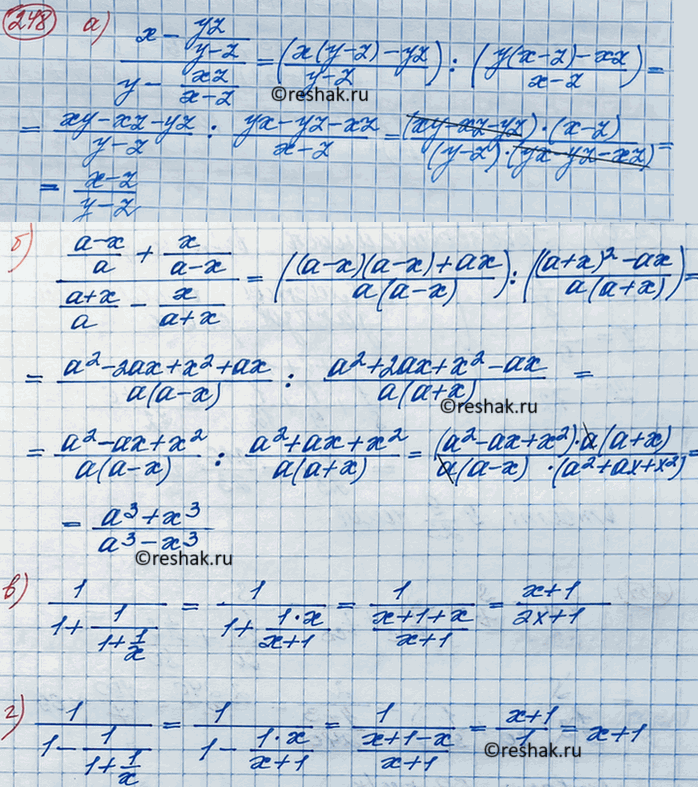 248 а) (x - yz/(y-z))/(y - xz/(x-z)) = ((x(y-z)-yz)/(y-z)) : ((y(x-z)-xz)/(x-z)) =
©reshak.ru
= (xy-xz-yz)/(y-z) : (yx-yz-xz)/(x-z) = ((xy-xz-yz)·(x-z))/((y-z)·(yx-yz-xz)) =
= (x-z)/(y-z)
б) ((a-x)/a + x/(a-x))/((a+x)/a - x/(a+x)) = (((a-x)(a-x)+ax)/(a(a-x))) : (((a+x)²-ax)/(a(a+x))) =
= (a²-2ax+x²+ax)/(a(a-x)) : (a²+2ax+x²-ax)/(a(a+x)) =
©reshak.ru
= (a²-ax+x²)/(a(a-x)) : (a²+ax+x²)/(a(a+x)) = ((a²-ax+x²)·a(a+x))/(a(a-x)·(a²+ax+x²)) =
= (a³+x³)/(a³-x³)
©reshak.ru
в) 1/(1+1/(1+1/x)) = 1/(1+(1·x)/(x+1)) = 1/((x+1+x)/(x+1)) = (x+1)/(2x+1)
г) 1/(1-1/(1+1/x)) = 1/(1-(1·x)/(x+1)) = 1/((x+1-x)/(x+1)) = (x+1)/1 = x+1
©reshak.ru